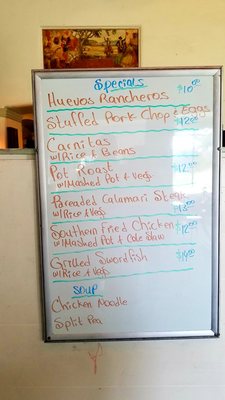 Specials
Huevos Rancheros $10.00
Stuffed Pork Chop & Eggs
$12.00
Carnitas
w/Rice & Beans
Pot Roast $12.00
w/Mashed Pot & Veg.
Breaded Calamari Steak
w/Rice & Veg $13.00
Southern Fried Chicken $12.00
w/Mashed Pot & Cole Slaw
Grilled Swordfish $14.00
w/Rice & Veg.
SOUP
Chicken Noodle
Split Pea